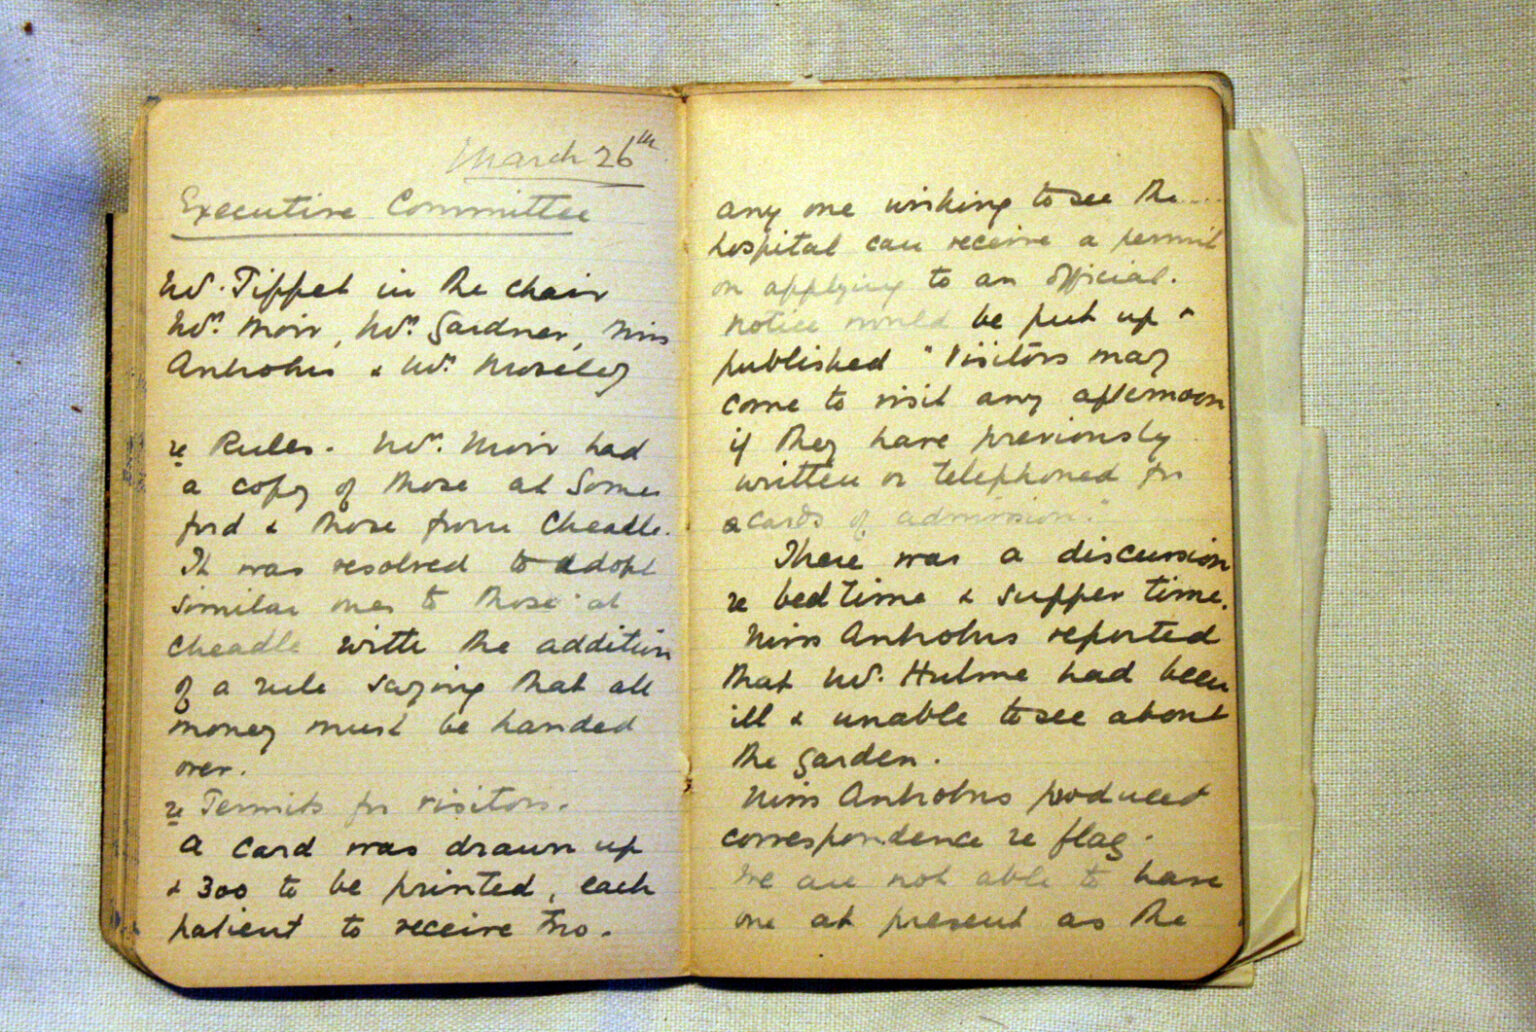 March 26th
Executive Committee
Mr. Tippet in the chair
Mrs. Moir, Mrs. Gardner, Miss
Antrobus & Mrs. Moseley
re Rules. Mrs. Moir had
a copy of those at Somer
ford & those from Cheadle.
It was resolved to adopt
similar ones to those at
Cheadle with the addition
of a rule saying that all
money must be handed
over.
re Permits for visitors.
A card was drawn up
& 300 to be printed, each
patient to receive two.
any one wishing to see the
hospital can receive a permit
on applying to an official.
Notice would be put up &
published "Visitors may
come to visit any afternoon
if they have previously
written or telephoned for
cards of admission."
There was a discussion
re bedtime & supper time.
Miss Antrobus reported
that Mr. Hulme had been
ill & unable to see about
the garden.
Miss Antrobus produced
correspondence re flag.
We are not able to have
one at present as the